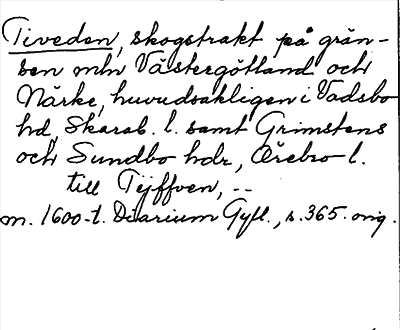 Tiveden, skogstrakt på grän-
sen mln Västergötland och
Närke, huvudsakligen i Vadsbo
hd, Skarab. l. samt Grimstens
och Sundbo hdr, Örebro l.
till Tijffven, --
m. 1600-t. Diarium Gyll., s. 365. orig.